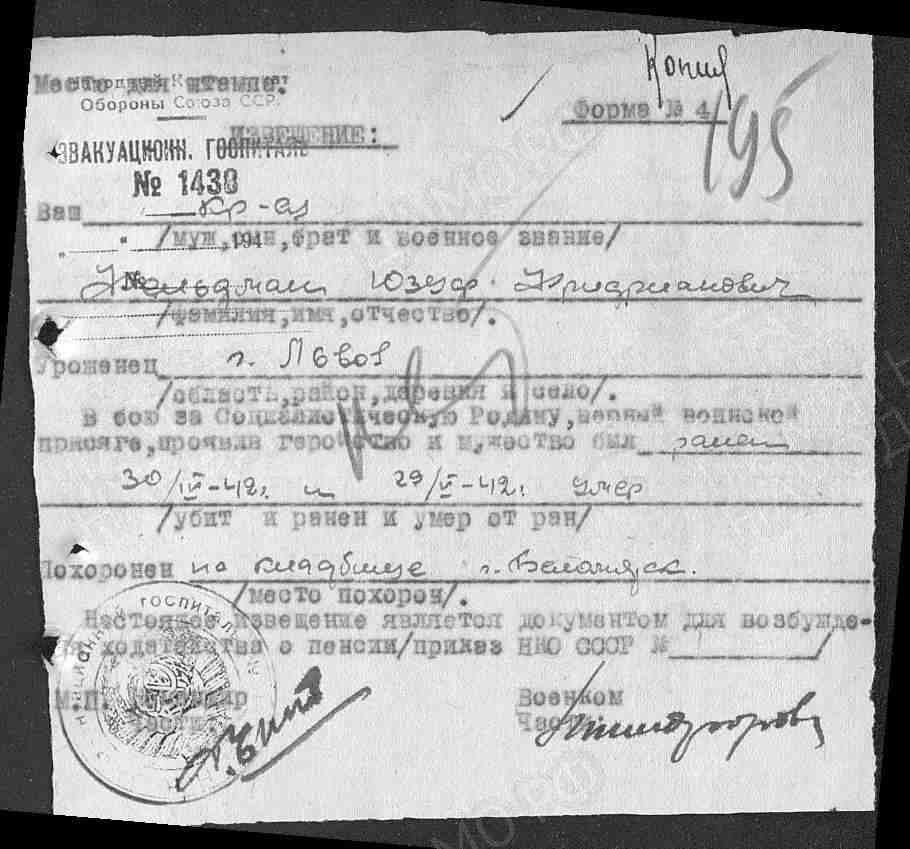 Копия
Место для штемпе.
Народный
Обороны Союза ССР.
Форма № 4/
195
ИЗВЕЩЕНИЕ:
ЭВАКУАЦИОНН. ГОСПИТАЛЬ
№ 1438
Ваш кр-ец
/муж, сын, брат и военное звание/
194
№
Юзеф
/фамилия, имя, отчество/.
Уроженец г. Львов
/область, район, деревня и село/.
В бою за Социалистическую Родину, верный воинской
присяге, проявив геройство и мужество был ранен
30/IV-42г. и 29/V-42г. умер
/убит и ранен и умер от ран/
Похоронен на кладбище г.
/место похорон/.
Настоящее извещение является документом для возбужде-
ния ходатайства о пенсии/приказ НКО СССР № /
М.П. Командир Военком
части Час